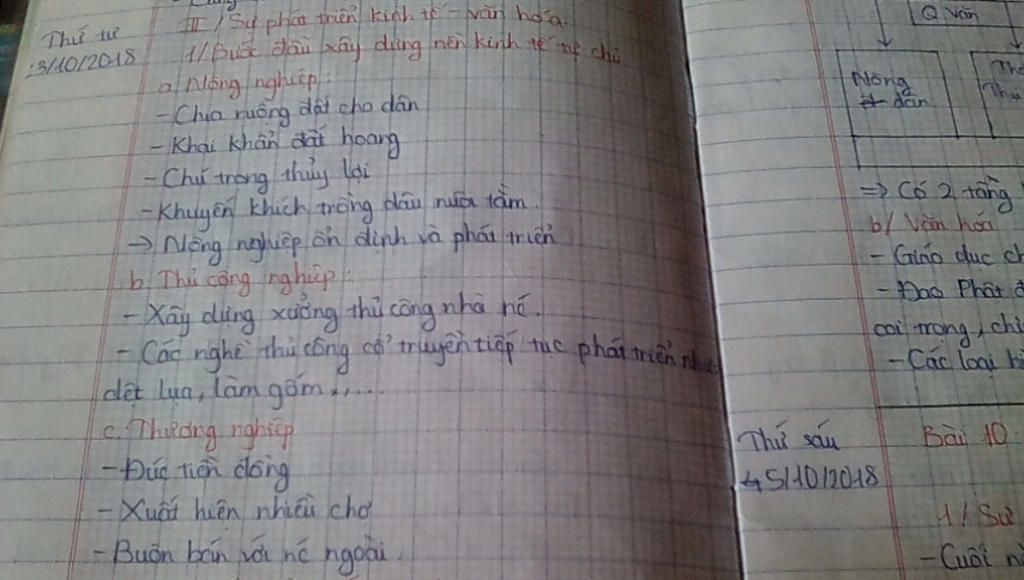 Thứ tư
3/10/2018
III / Sự phát triển kinh tế - văn hóa
1/ Bước đầu xây dựng nền kinh tế tự chủ
a. Nông nghiệp:
- Chia ruộng đất cho dân
- Khai khẩn đất hoang
- Chú trọng thủy lợi
- Khuyến khích trồng dâu nuôi tằm.
→ Nông nghiệp ổn định và phát triển
b. Thủ công nghiệp:
- Xây dựng xưởng thủ công nhà nc.
- Các nghề thủ công cổ truyền tiếp tục phát triển như
dệt lụa, làm gốm,....
c. Thương nghiệp
- Đúc tiền đồng
- Xuất hiện nhiều chợ
- Buôn bán với nc ngoài.
Q Văn
Nông
dân
Thợ
Thủ
=> Có 2 tầng
b/ Văn hóa
- Giáo dục ch
- Đạo Phật đ
coi trọng, chù
- Các loại h
Thứ sáu
5/10/2018
Bài 10
1/ Sự
- Cuối n